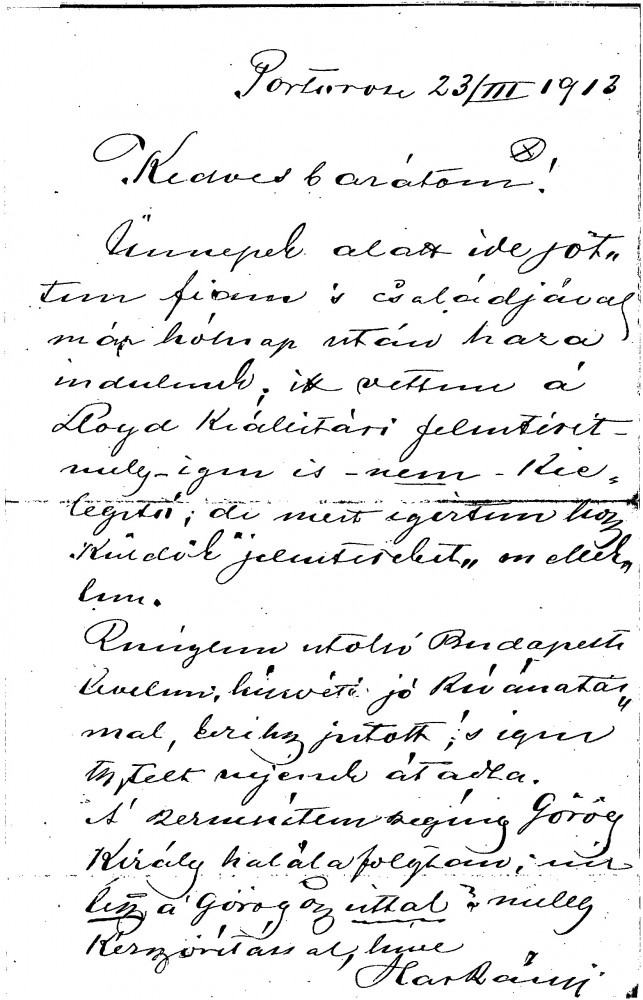 Portorose 23/III 1913
Kedves barátom!
Ünnepek alatt ide jöt„
tem fiam 's családjával
már hólnap után haza
indulunk; itt vettem á
Lloyd Kiállitási jelentését
mely - igen is - nem - Kie„
legitő; de mert igértem hogy
Küldök "jelentéseket„ mellék„
lem.
Reménylem utolsó Budapesti
levelem, húsvéti jó Kivánatai„
mal, kezihez jutott, 's igen
tisztelt nejének átadta.
Á szegény Görög
Király halála folytán;
lesz á Görög úttal? meleg
Kézszóritással, hive
Harkányi